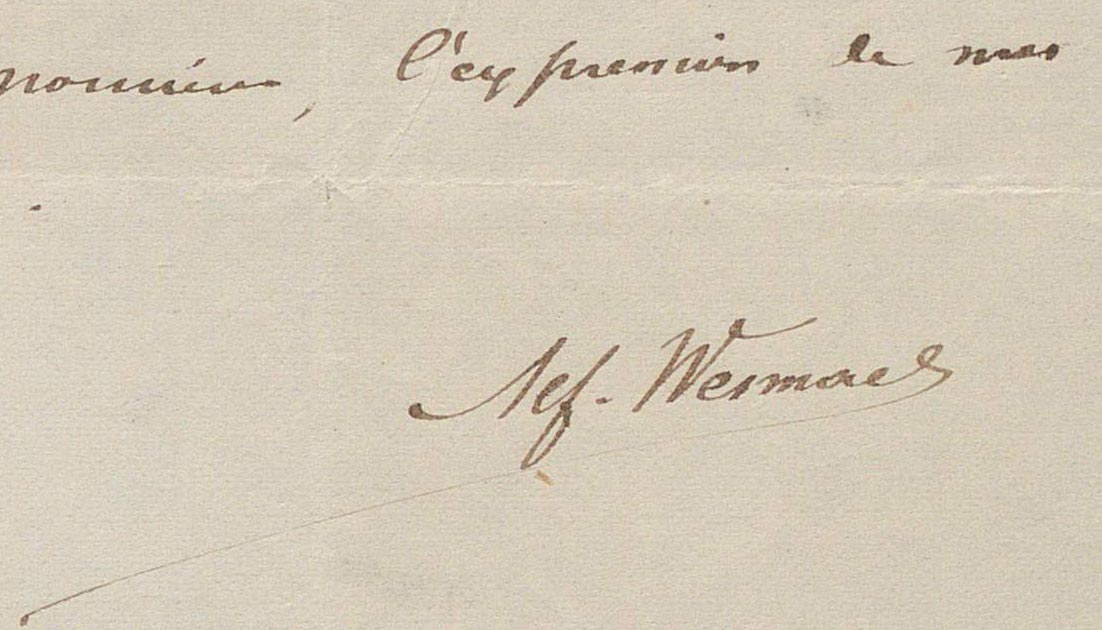 Monsieur, l'expression de mes
Alf. Wesmael